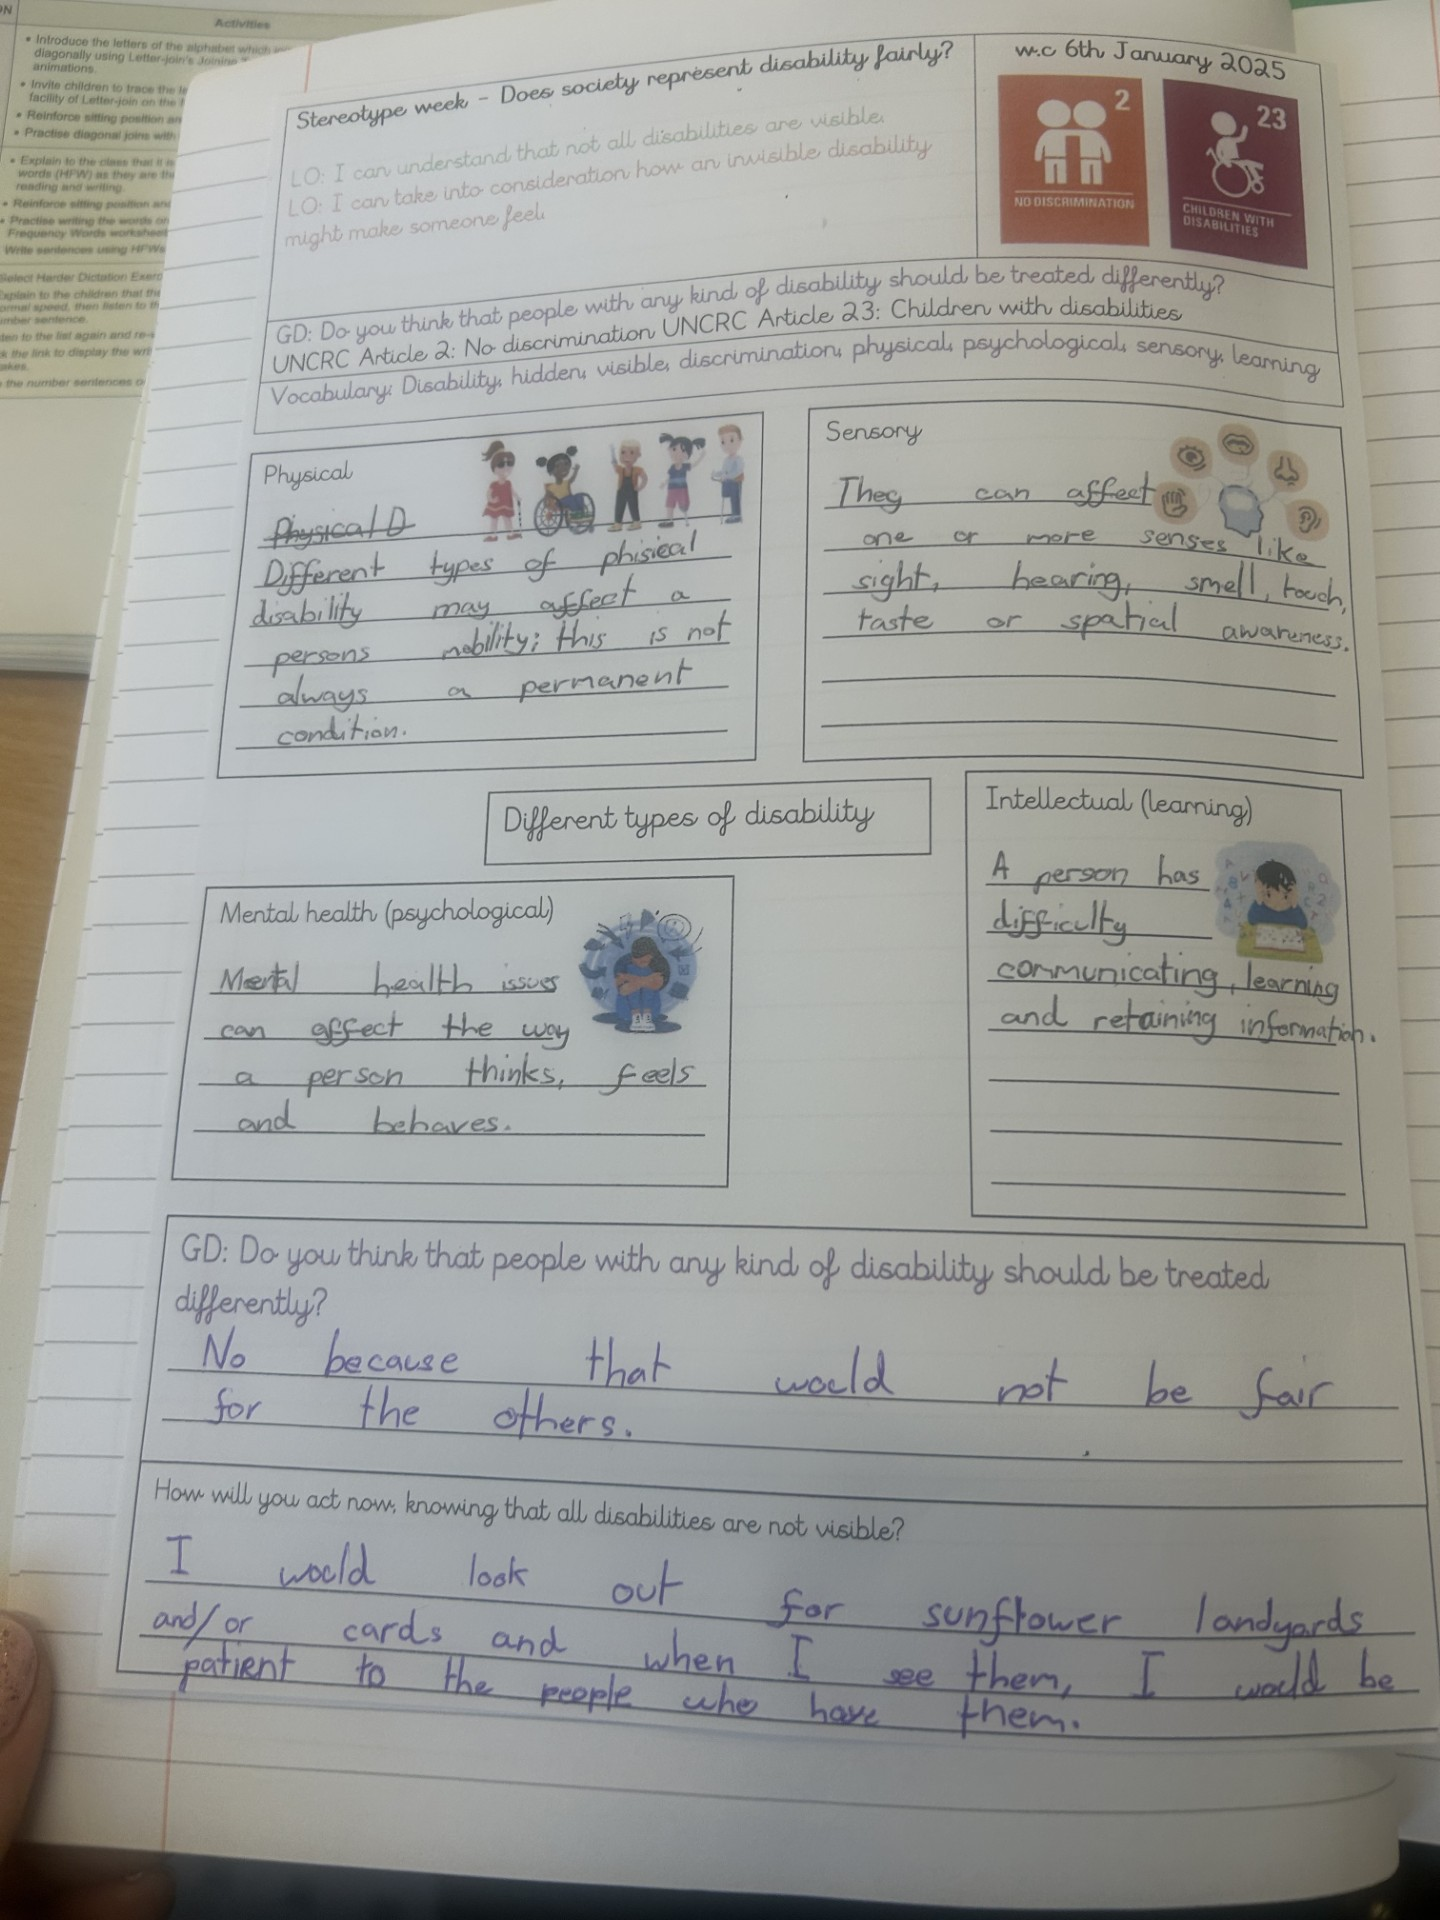 ON
Activities
• Introduce the letters of the alphabet which
diagonally using Letter-join's Joining
animations.
• Invite children to trace the
facility of Letter-join on the
• Reinforce sitting position an
• Practise diagonal joins with
• Explain to the class that it is
words (HFW) as they are the
reading and writing.
• Reinforce sitting position and
• Practise writing the words on
Frequency Words worksheet
Write sentences using HFWs
Select Harder Dictation Exerc
Explain to the children that the
normal speed, then listen to th
number sentence.
to the list again and re-
the link to display the wri
the number sentences o
Stereotype week - Does society represent disability fairly?
w.c 6th January 2025
LO: I can understand that not all disabilities are visible.
LO: I can take into consideration how an invisible disability
might make someone feel.
2
NO DISCRIMINATION
23
CHILDREN WITH
DISABILITIES
GD: Do you think that people with any kind of disability should be treated differently?
UNCRC Article 2: No discrimination UNCRC Article 23: Children with disabilities
Vocabulary: Disability, hidden, visible, discrimination, physical, psychological, sensory, learning
Physical
Physical D
Different types of phisical
disability may affect a
persons mobility; this is not
always a permanent
condition.
Sensory
They can affect
one or more senses like
sight, hearing, smell, touch,
taste or spatial awareness.
Different types of disability
Mental health (psychological)
Mental health issues
can affect the way
a person thinks, feels
and behaves.
Intellectual (learning)
A person has
difficulty
communicating, learning
and retaining information.
GD: Do you think that people with any kind of disability should be treated
differently?
No because that would not be fair
for the others.
How will you act now, knowing that all disabilities are not visible?
I would look out for sunflower landyards
and/or cards and when I see them, I would be
patient to the people who have them.